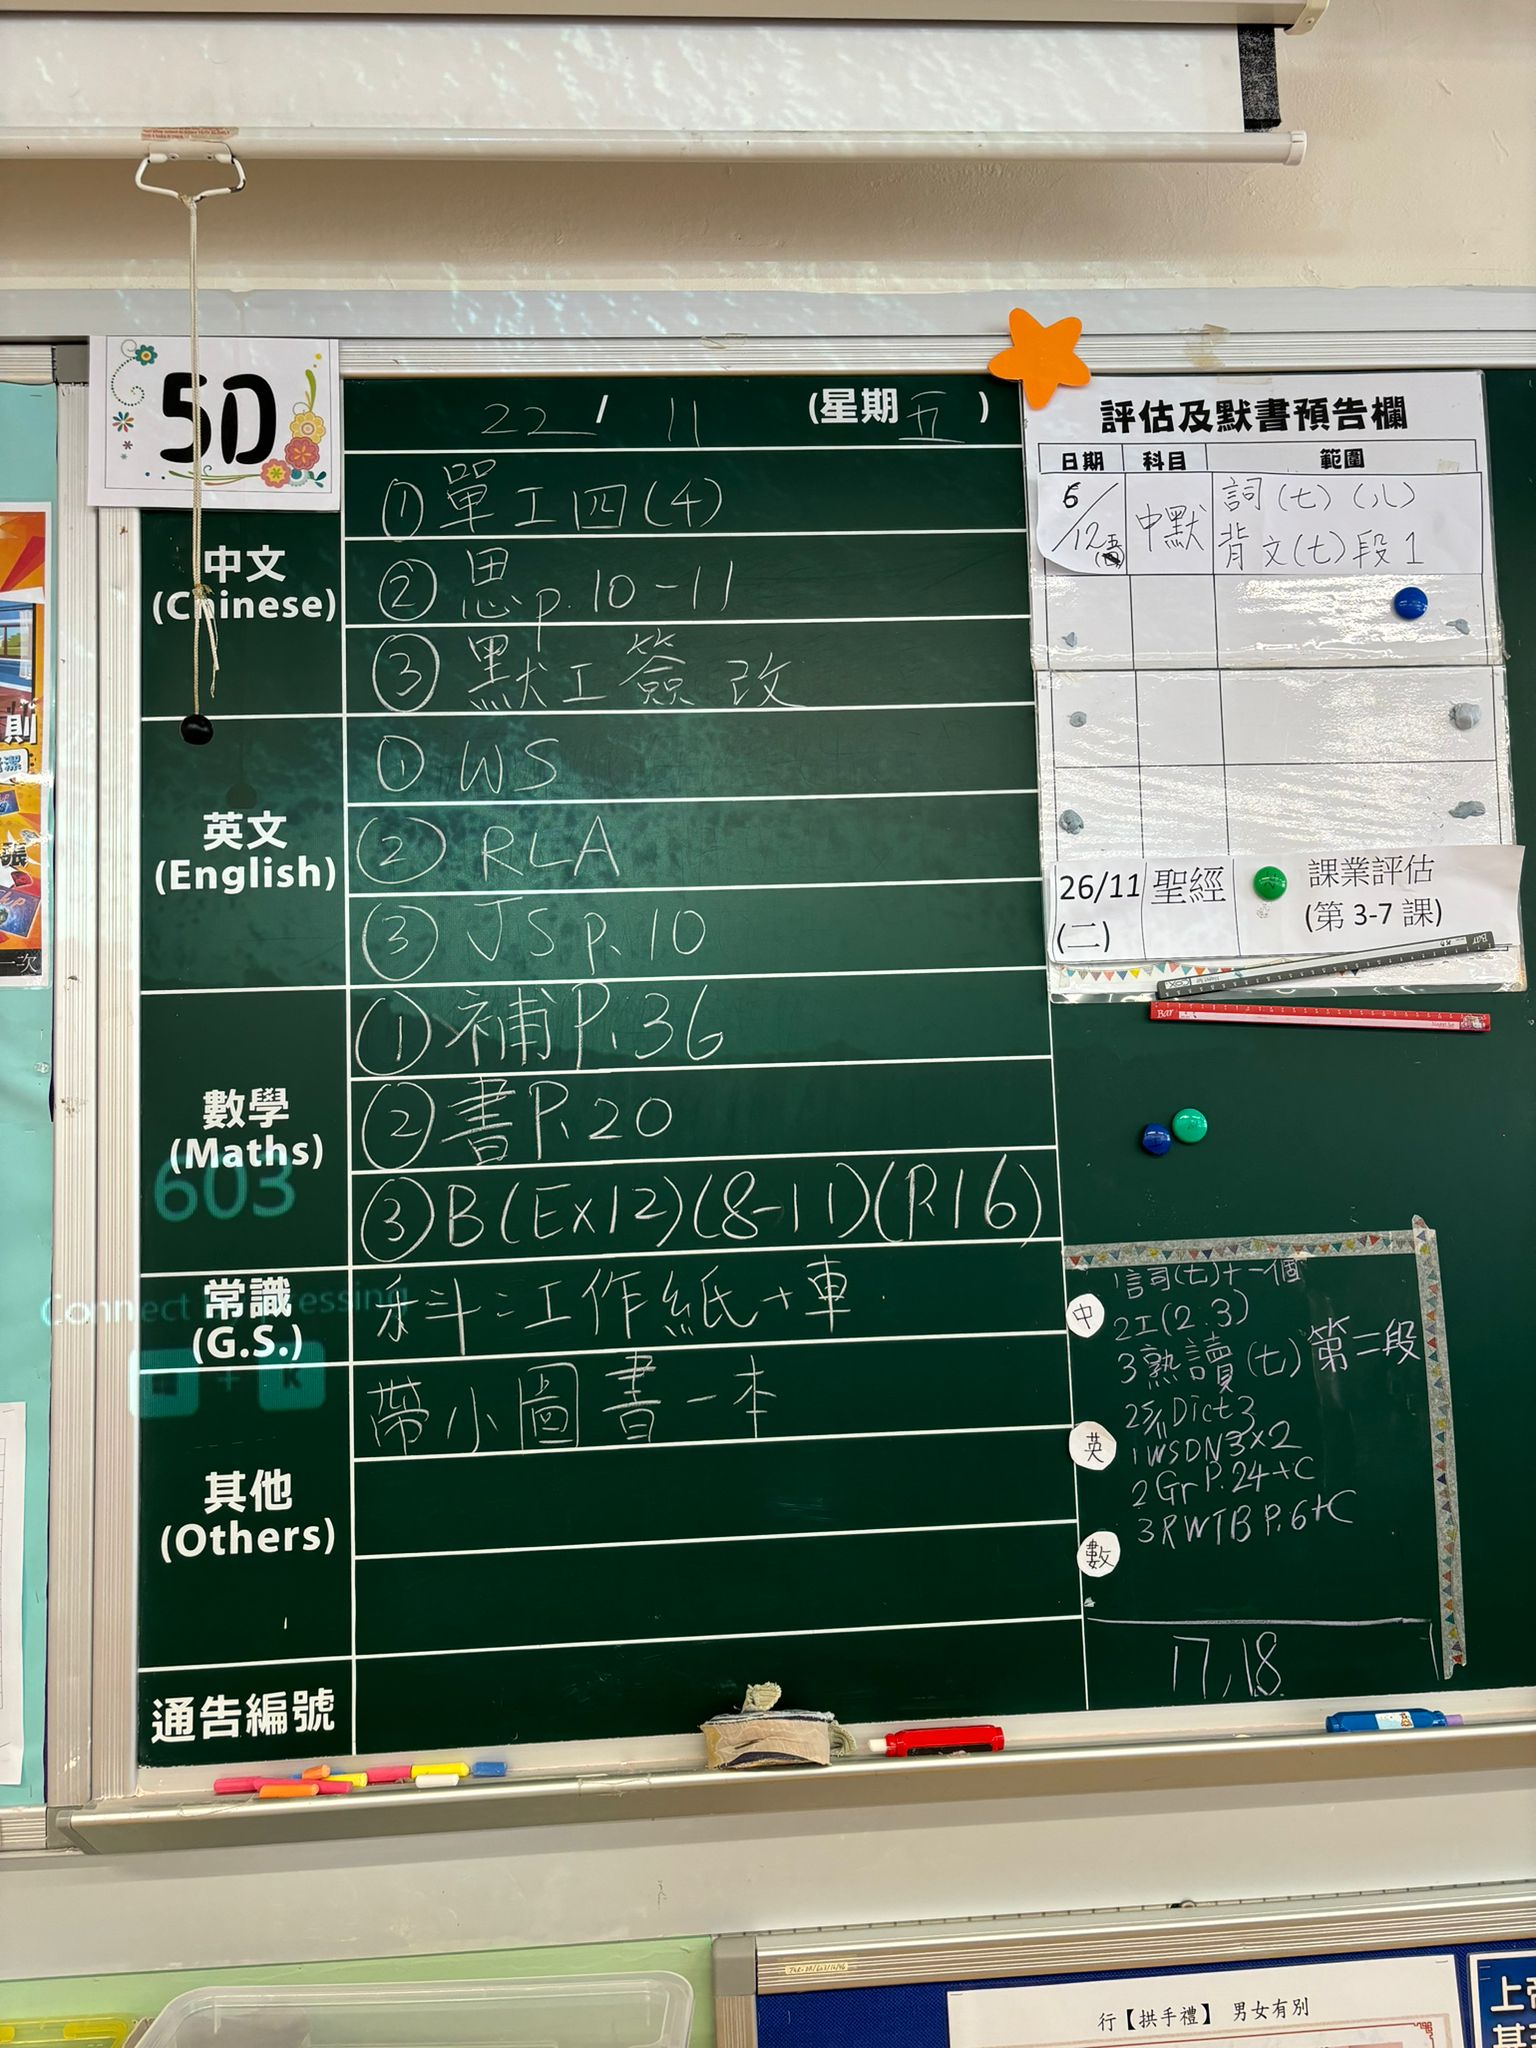 5D
22 / 11 (星期五)
中文
(Chinese)
①單工四(4)
②思p.10-11
③默工簽改
英文
(English)
①WS
②RLA
③JS p.10
數學
(Maths)
①補P.36
②書P.20
③B(Ex12)(8-11)(P.16)
603
常識
(G.S.)
科:工作紙+車
Connect
+ K
其他
(Others)
帶小圖書一本
通告編號
評估及默書預告欄
日期 科目 範圍
6/12 中默 詞(七)(八)
背文(七)段1
26/11 聖經 課業評估
(二) (第 3-7 課)
Bar
中
1詞(七)+一個
2工(2.3)
3熟讀(七)第二段
英
Dict 3
1WSDN3x2
2Gr P.24+C
3RWTB P.6+C
數
17,18
則
潔
張
一次
行【拱手禮】 男女有別